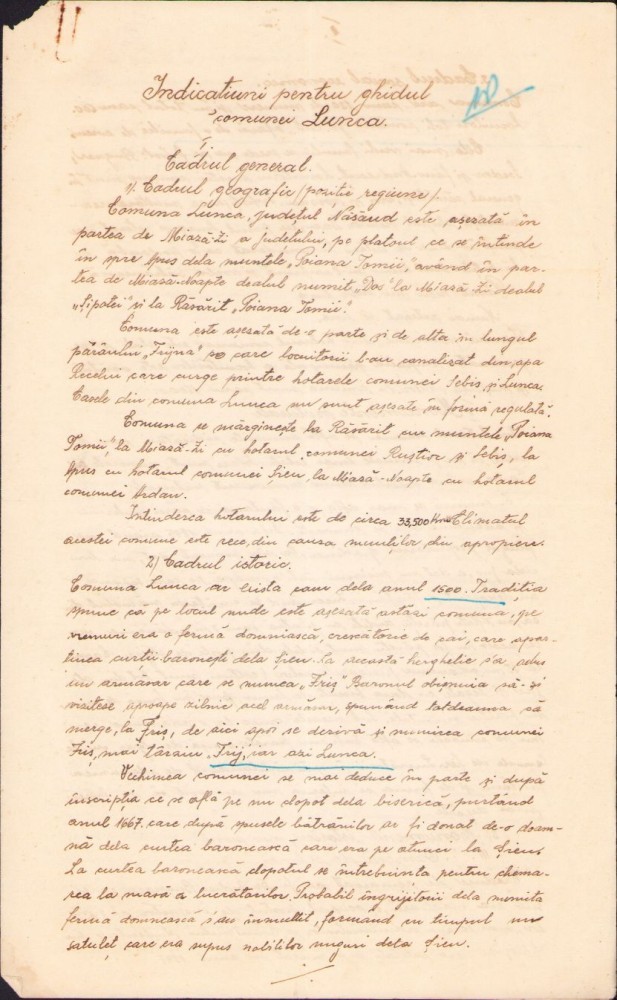 Indicatiuni pentru ghidul
comunei Lunca.
I.
Cadrul general.
1). Cadrul geografic (poziție regiune).
Comuna Lunca, județul Năsăud este așezată în
partea de Miază-Zi a județului, pe platoul ce se întinde
în spre Apus dela muntele „Poiana Tomii”, având în par-
tea de Miază-Noapte dealul numit „Dos” la Miază-Zi dealul
„Șipotei” și la Răsărit „Poiana Tomii”.
Comuna este așezată de-o parte și de alta în lungul
părăului „Frijna” pe care locuitorii l-au canalizat din apa
Recelui care curge printre hotarele comunei Sebiș și Lunca.
Casele din comuna Lunca nu sunt așezate în formă regulată.
Comuna se mărginește la Răsărit cu muntele „Poiana
Tomii”, la Miază-Zi cu hotarul comunei Ruștior și Sebiș, la
Apus cu hotarul comunei Șieu, la Miază-Noapte cu hotarul
comunei Ardan.
Intinderea hotarului este de circa 33,500 Climatul
acestei comune este rece, din cauza munților din apropiere.
2) Cadrul istoric.
Comuna Lunca ar exista cam dela anul 1500. Tradiția
spune că pe locul unde este așezată astăzi comuna, pe
vremuri era o fermă domniască, crescătorie de cai, care apar-
tinea curții baronești dela Șieu. La această herghelie s'a adus
un armăsar care se numea „Friș” Baronul obișnuia să-și
viziteze aproape zilnic acel armăsar, spunând totdeauna să
merge, la Friș, de aici apoi se derivă și numirea comunei
Friș, mai târziu „Frij”, iar azi Lunca.
Vechimea comunei se mai deduce în parte și după
inscripția ce se află pe un clopot dela biserică, purtând
anul 1667. care după spusele bătrânilor ar fi donat de-o doam-
nă dela curtea baronească care era pe atunci la Șieu.
La curtea baronească clopotul se întrebuința pentru chema-
rea la masă a lucrătorilor. Probabil îngrijitorii dela numita
fermă domnească s'au înmultit, formând cu timpul un
satuleț care era supus nobililor unguri dela Șieu.